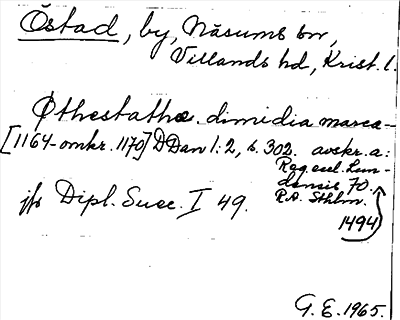 Östad, by, Näsums sn,
Villands hd, Krist. l.
Øthestathæ. dimidia marca-
[1164-omkr. 1170] DDan 1:2, s. 302. avskr. a:
Reg. eccl. Lun-
densis, 70.
R.A. Sthlm.
jfr Dipl. Suec. I 49.
1494
G. E. 1965.